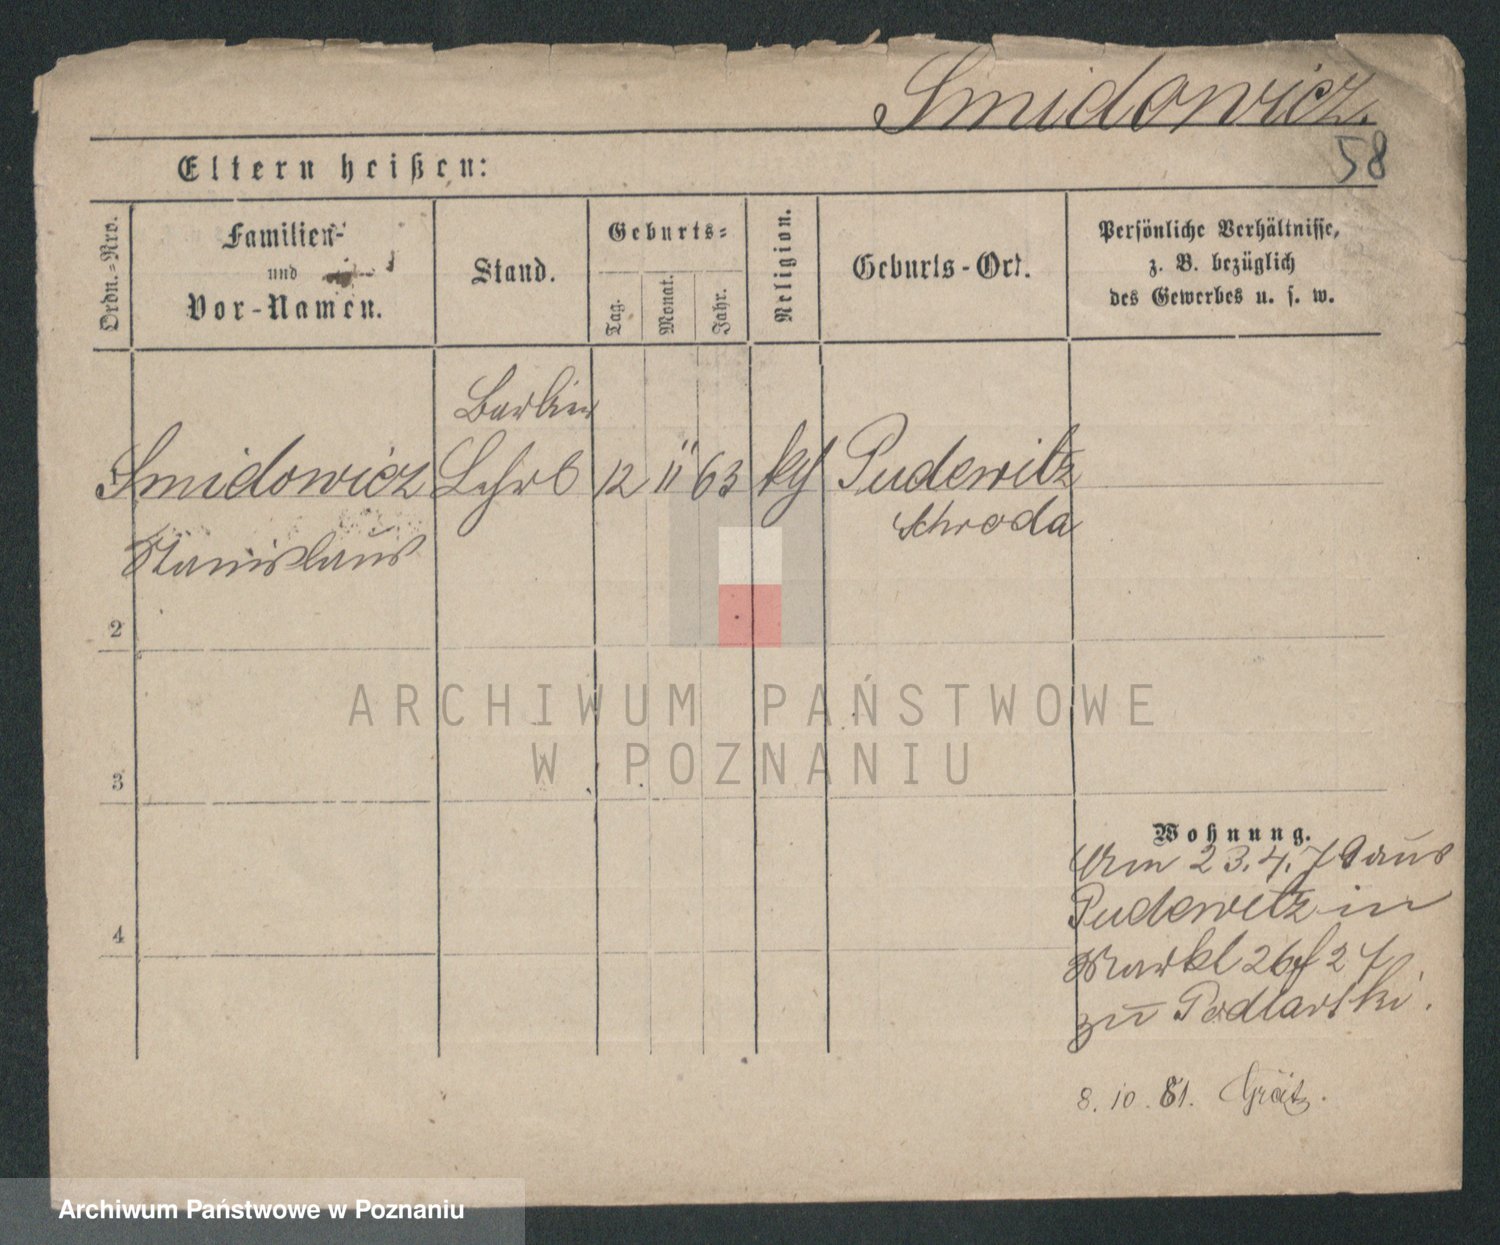 Smidowicz.
58
Eltern heißen:
Ordn.=Nro.
Familien-
und
Vor-Namen.
Stand.
Geburts-
Tag.
Monat.
Jahr.
Religion.
Geburts-Ort.
Persönliche Verhältnisse,
z. B. bezüglich
des Gewerbes u. s. w.
Smidowicz
Stanislaus
Lehrl
12
11
63
kth
Pudewitz
Schroda
2
3
4
Wohnung.
Am 23.4.79 aus
Pudewitz in
Markt 27
zu Podlarski.
8. 10. 81. Grätz.
ARCHIWUM PAŃSTWOWE
W POZNANIU
Archiwum Państwowe w Poznaniu